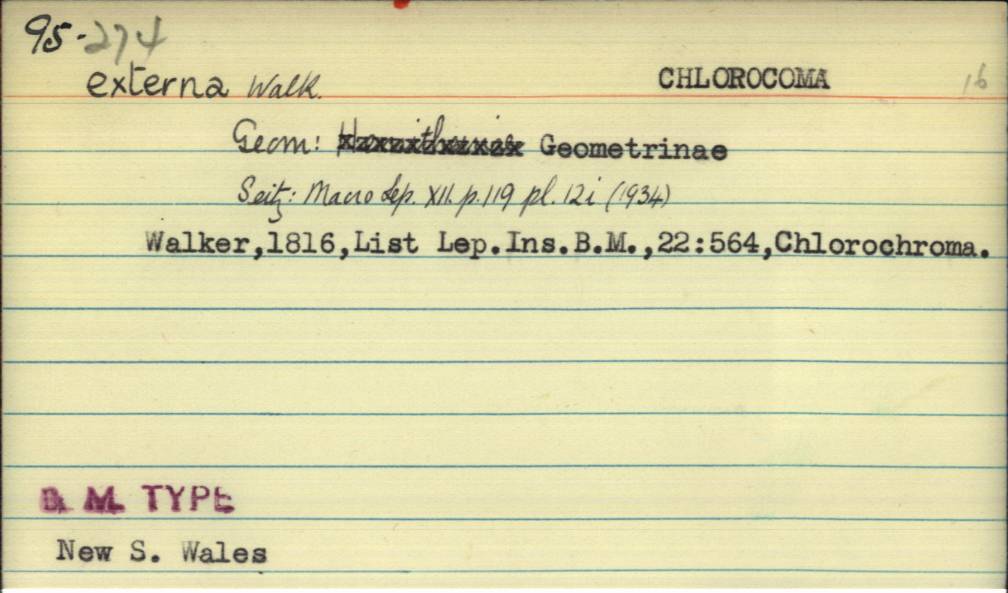 95-274
externa Walk. CHLOROCOMA 16
Geom: Geometrinae
Seitz: Macro Lep. XII. p.119 pl. 12i (1934)
Walker,1816,List Lep.Ins.B.M.,22:564,Chlorochroma.
B. M. TYPE
New S. Wales